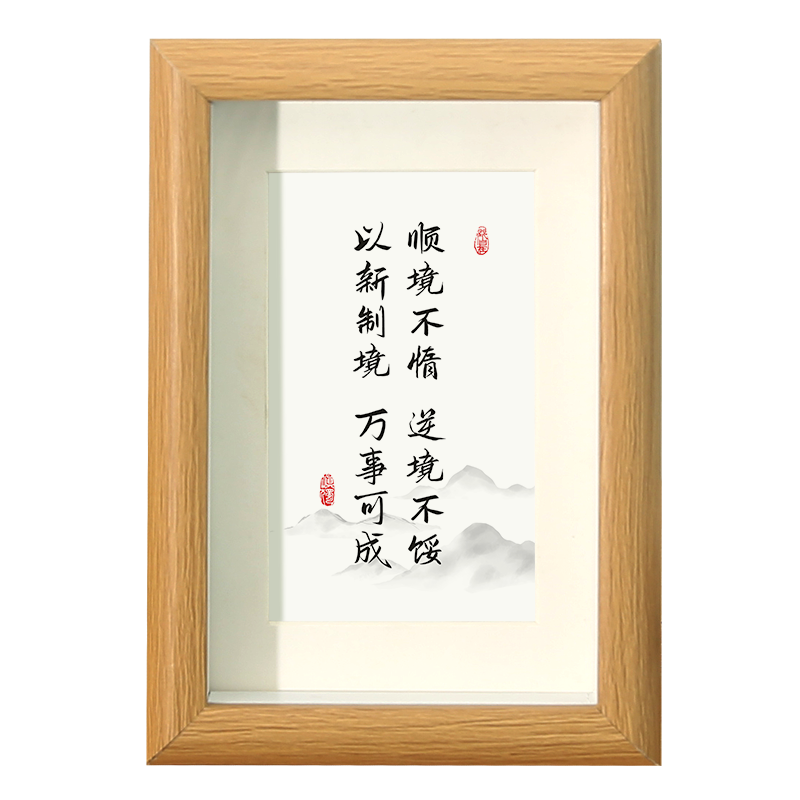 顺境不惰 逆境不馁
以新制境 万事可成